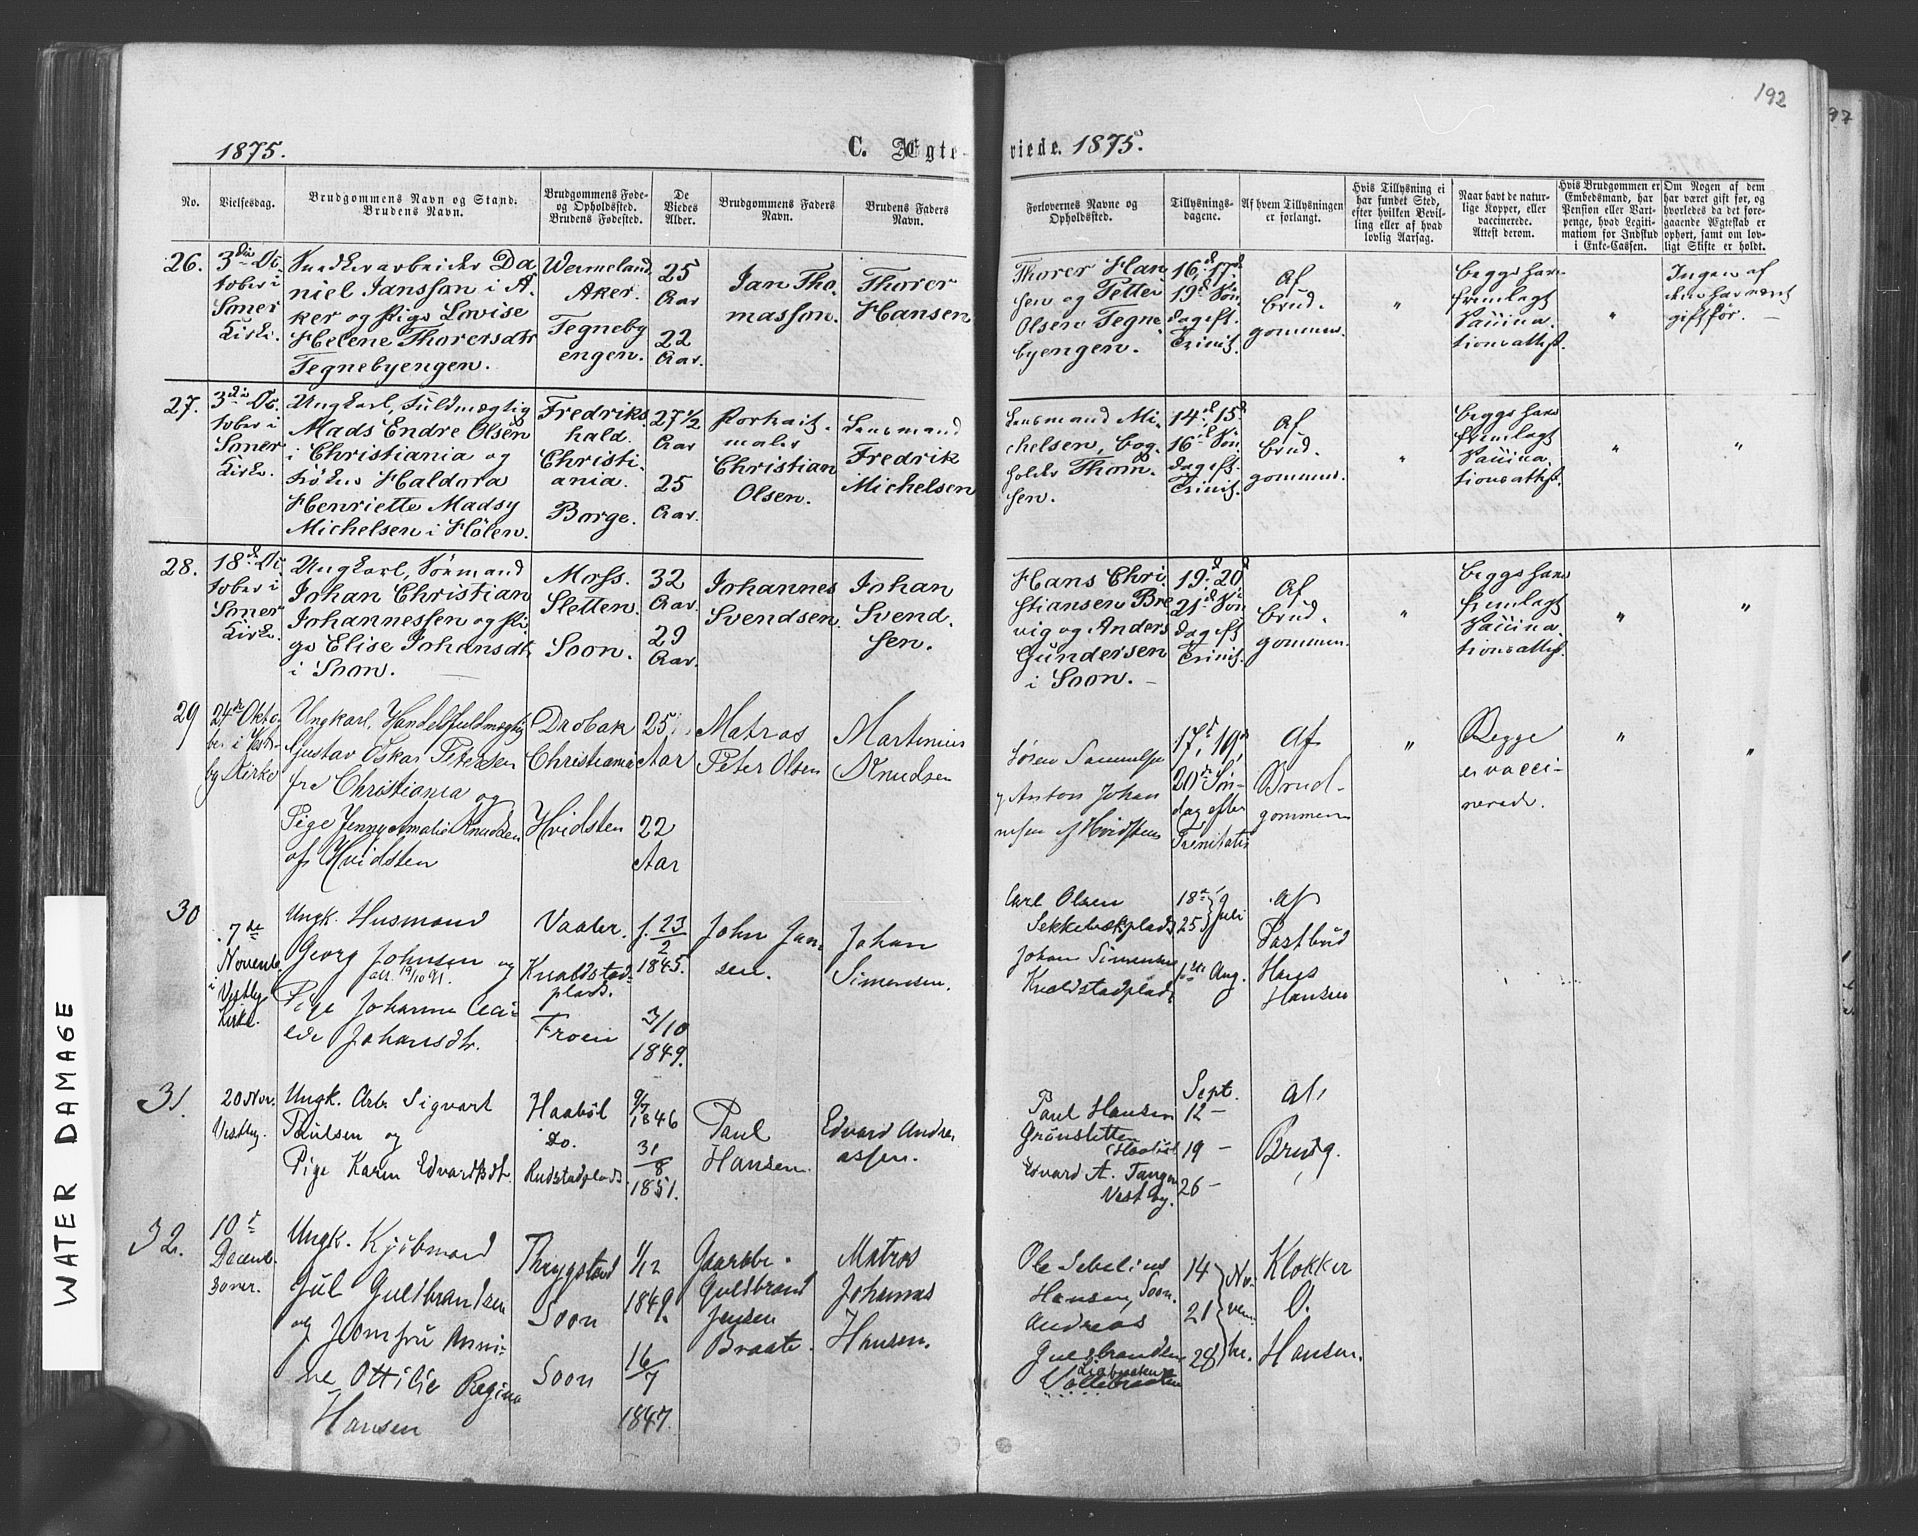 192
97
1875.
C. Ægte-
viede. 1875.
No.
Vielsesdag.
Brudgommens Navn og Stand.
Brudens Navn.
Brudgommens Føde-
og Opholdssted.
Brudens Fødested.
De
Viedes
Alder.
Brudgommens Faders
Navn.
Brudens Faders
Navn.
Forlovernes Navne og
Opholdssted.
Tillysnings-
dagene.
Af hvem Tillysningen
er forlangt.
Hvis Tillysning ei
har fundet Sted,
efter hvilken Bevil-
ling eller af hvad
lovlig Aarsag.
Naar havt de natur-
lige Kopper, eller
vaccinerede.
Attest derom.
Hvis Brudgommen er
Embedsmand, har
Pension eller Vart-
penge, hvad Legiti-
mation for Indskud
i Enke-Cassen.
Om Nogen af dem
har været gift før, og
hvorledes da det fore-
gaaende Ægteskab er
ophørt, samt om lov-
ligt Skifte er holdt.
26.
3die Oc.
tober i
Smer
Kirke.
Snedkerarbeider Da
niel Jansson i A.
ker og Pige Lovise
Helene Thorersdtr
Tegnebyengen.
Wermeland.
Aker.
Tegneby
engen.
25
Aar
22
Aar.
Jan Tho.
masson.
Thorer
Hansen
Thorer Han
sen og Petter
Olsen Tegne.
byengen.
16, 17d
19d Søn
dag eft.
Trinit.
Af
brud.
gommen.
"
begge have
fremlagt
Vaccina.
tionsattest.
"
Ingen af
dem har været
gift før. —
27.
3die Oc.
tober i
Smer
Kirke.
Ungkarl, Fuldmægtig
Mads Endre Olsen
i Christiania og
Frøken Haldora
Henriette Madsy
Michelsen i Hølen.
Fredriks
hald.
Christi.
ania.
Borge.
27 1/2
Aar
25
Aar.
Portrait.
maler
Christian
Olsen.
Lensmand
Fredrik
Michelsen
Lensmand Mi.
chelsen, Bog
holder Thom.
sen.
14. 15d
16d Søn
dag eft.
Trinit.
Af
brud.
gommen.
"
begge have
fremlagt
Vaccina.
tionsattest.
"
"
28.
18de Oc.
tober i
Smer
Kirke.
Ungkarl, Sømand
Johan Christian
Johannessen og Pi.
ge Elise Johansdtr
i Soon.
Moss.
Sletten.
Soon.
32
Aar.
29
Aar.
Johannes
Svendsen.
Johan
Svend
sen.
Hans Chri.
stiansen Bre
vig og Anders
Gundersen
i Soon. —
19. 20d
21d Søn
dag eft
Trinit.
Af
brud.
gommen.
"
begge have
fremlagt
Vaccina.
tionsattest.
"
"
29
24de Okto.
ber i Vest-
by Kirke
Ungkarl, Handelsfuldmægtig
Gustav Oskar Petersen
fra Christiania og
Pige Jenny Amalie Knudsen
af Hvidsten
Drobak
Christiania
Hvidsten
25
Aar
22
Aar
Matros
Peter Olsen
Martinius
Knudsen
Søren Samuelsen
og Anton Johan
nesen af Hvidsten
17d, 19d
20de Søn-
dag efter
Trinitatis
Af
Brud-
gommen
"
Begge
er vacci-
nerede.
"
"
30
7de
Novemb.
i
Vestby
Kirke.
Ungk. Husmand
Georg Johnsen og
att. 19/10 91.
Pige Johanne Ceci-
lie Johansdtr.
Vaaler.
Knaldstad
plads.
Froen
f. 23/2
1845.
3/10
1849.
John Jan
sen.
Johan
Simensen.
Carl Olsen
Sekkebækplads
Johan Simensen
Knaldstadplads
18de
25
Juli
1ste Aug.
Af
Postbud
Hans
Hansen
31.
20 Nov.
Vestby.
Ungk. Arb. Sigvart
Paulsen og
Pige Karen Edvardsdt.
Haabøl
Do.
Rudstadplads.
9/7
1846
31/8
1851.
Paul
Hansen.
Edvard Andre
assen.
Paul Hansen
Grønsletten
Haabøl
Edvard A. Tangen
Vestby.
Sept.
12 —
19 —
26 —
Af
Brudg.
32.
10d
Decemb.
Soner.
Ungk. Kjøbmand
Jul Guldbrandsen
og Jomfru Anni-
ne Ottilie Regine
Hansen
Thrygstad
Soon
Soon
1/12
1849.
16/7
1847.
Gaardbr.
Guldbrand
Jensen
Braate.
Matros
Johannes
Hansen.
Ole Sebelius
Hansen, Soon.
Andreas
Gulbrandsen
14
21
28
No.
vem.
br.
Klokker
O.
Hansen.
WATER DAMAGE